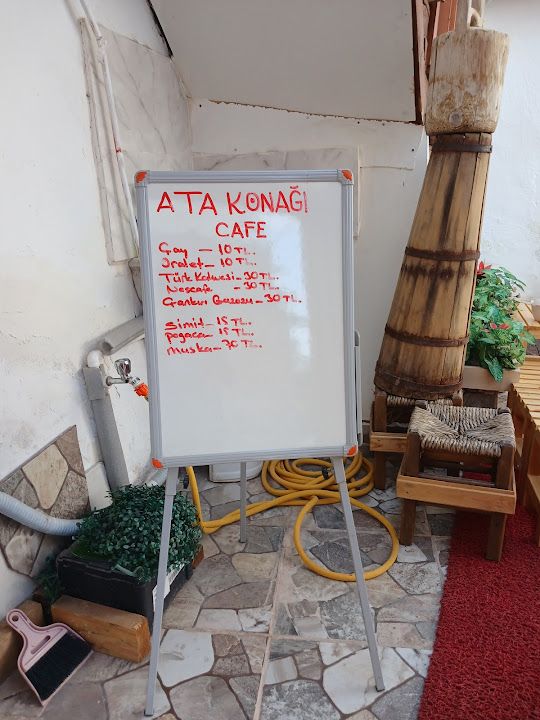 ATA KONAĞI
CAFE
Çay — 10 TL..
Oralet — 10 TL..
Türk Kahvesi — 30 TL..
Nescafe — 30 TL..
Çankırı Gazozu — 30 TL..
Simit — 15 TL..
poğaca — 15 TL..
muska — 30 TL..